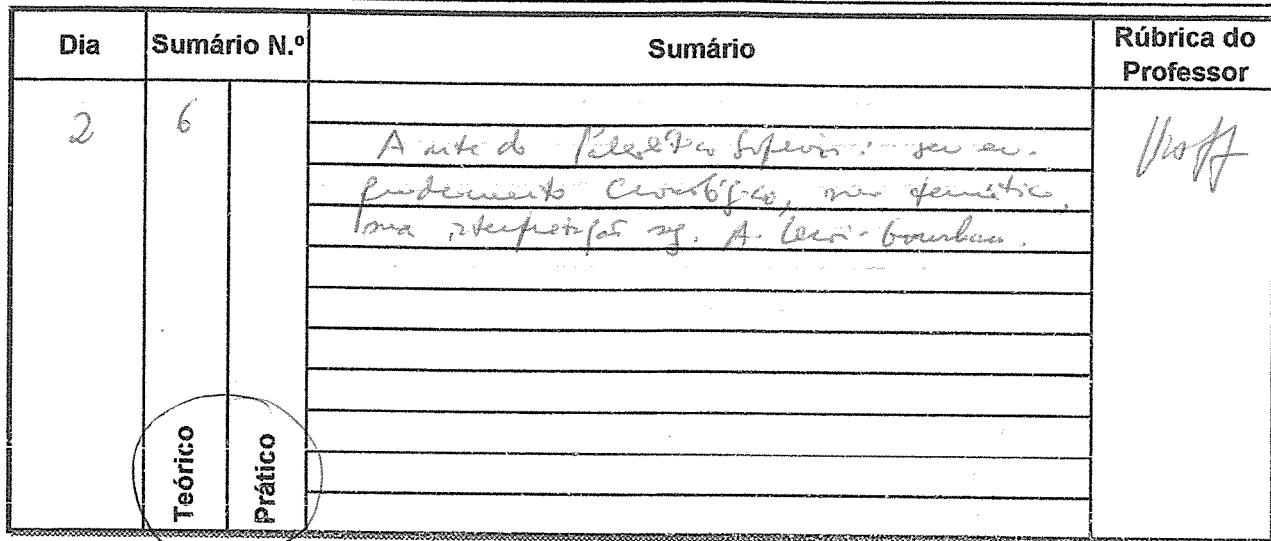 Dia Sumário N.º Sumário Rúbrica do Professor
2 6
A arte do Paleolítico Superior: seu en-
quadramento cronológico, sua temática,
sua interpretação sg. A. Leroi-Gourhan.
Teórico Prático